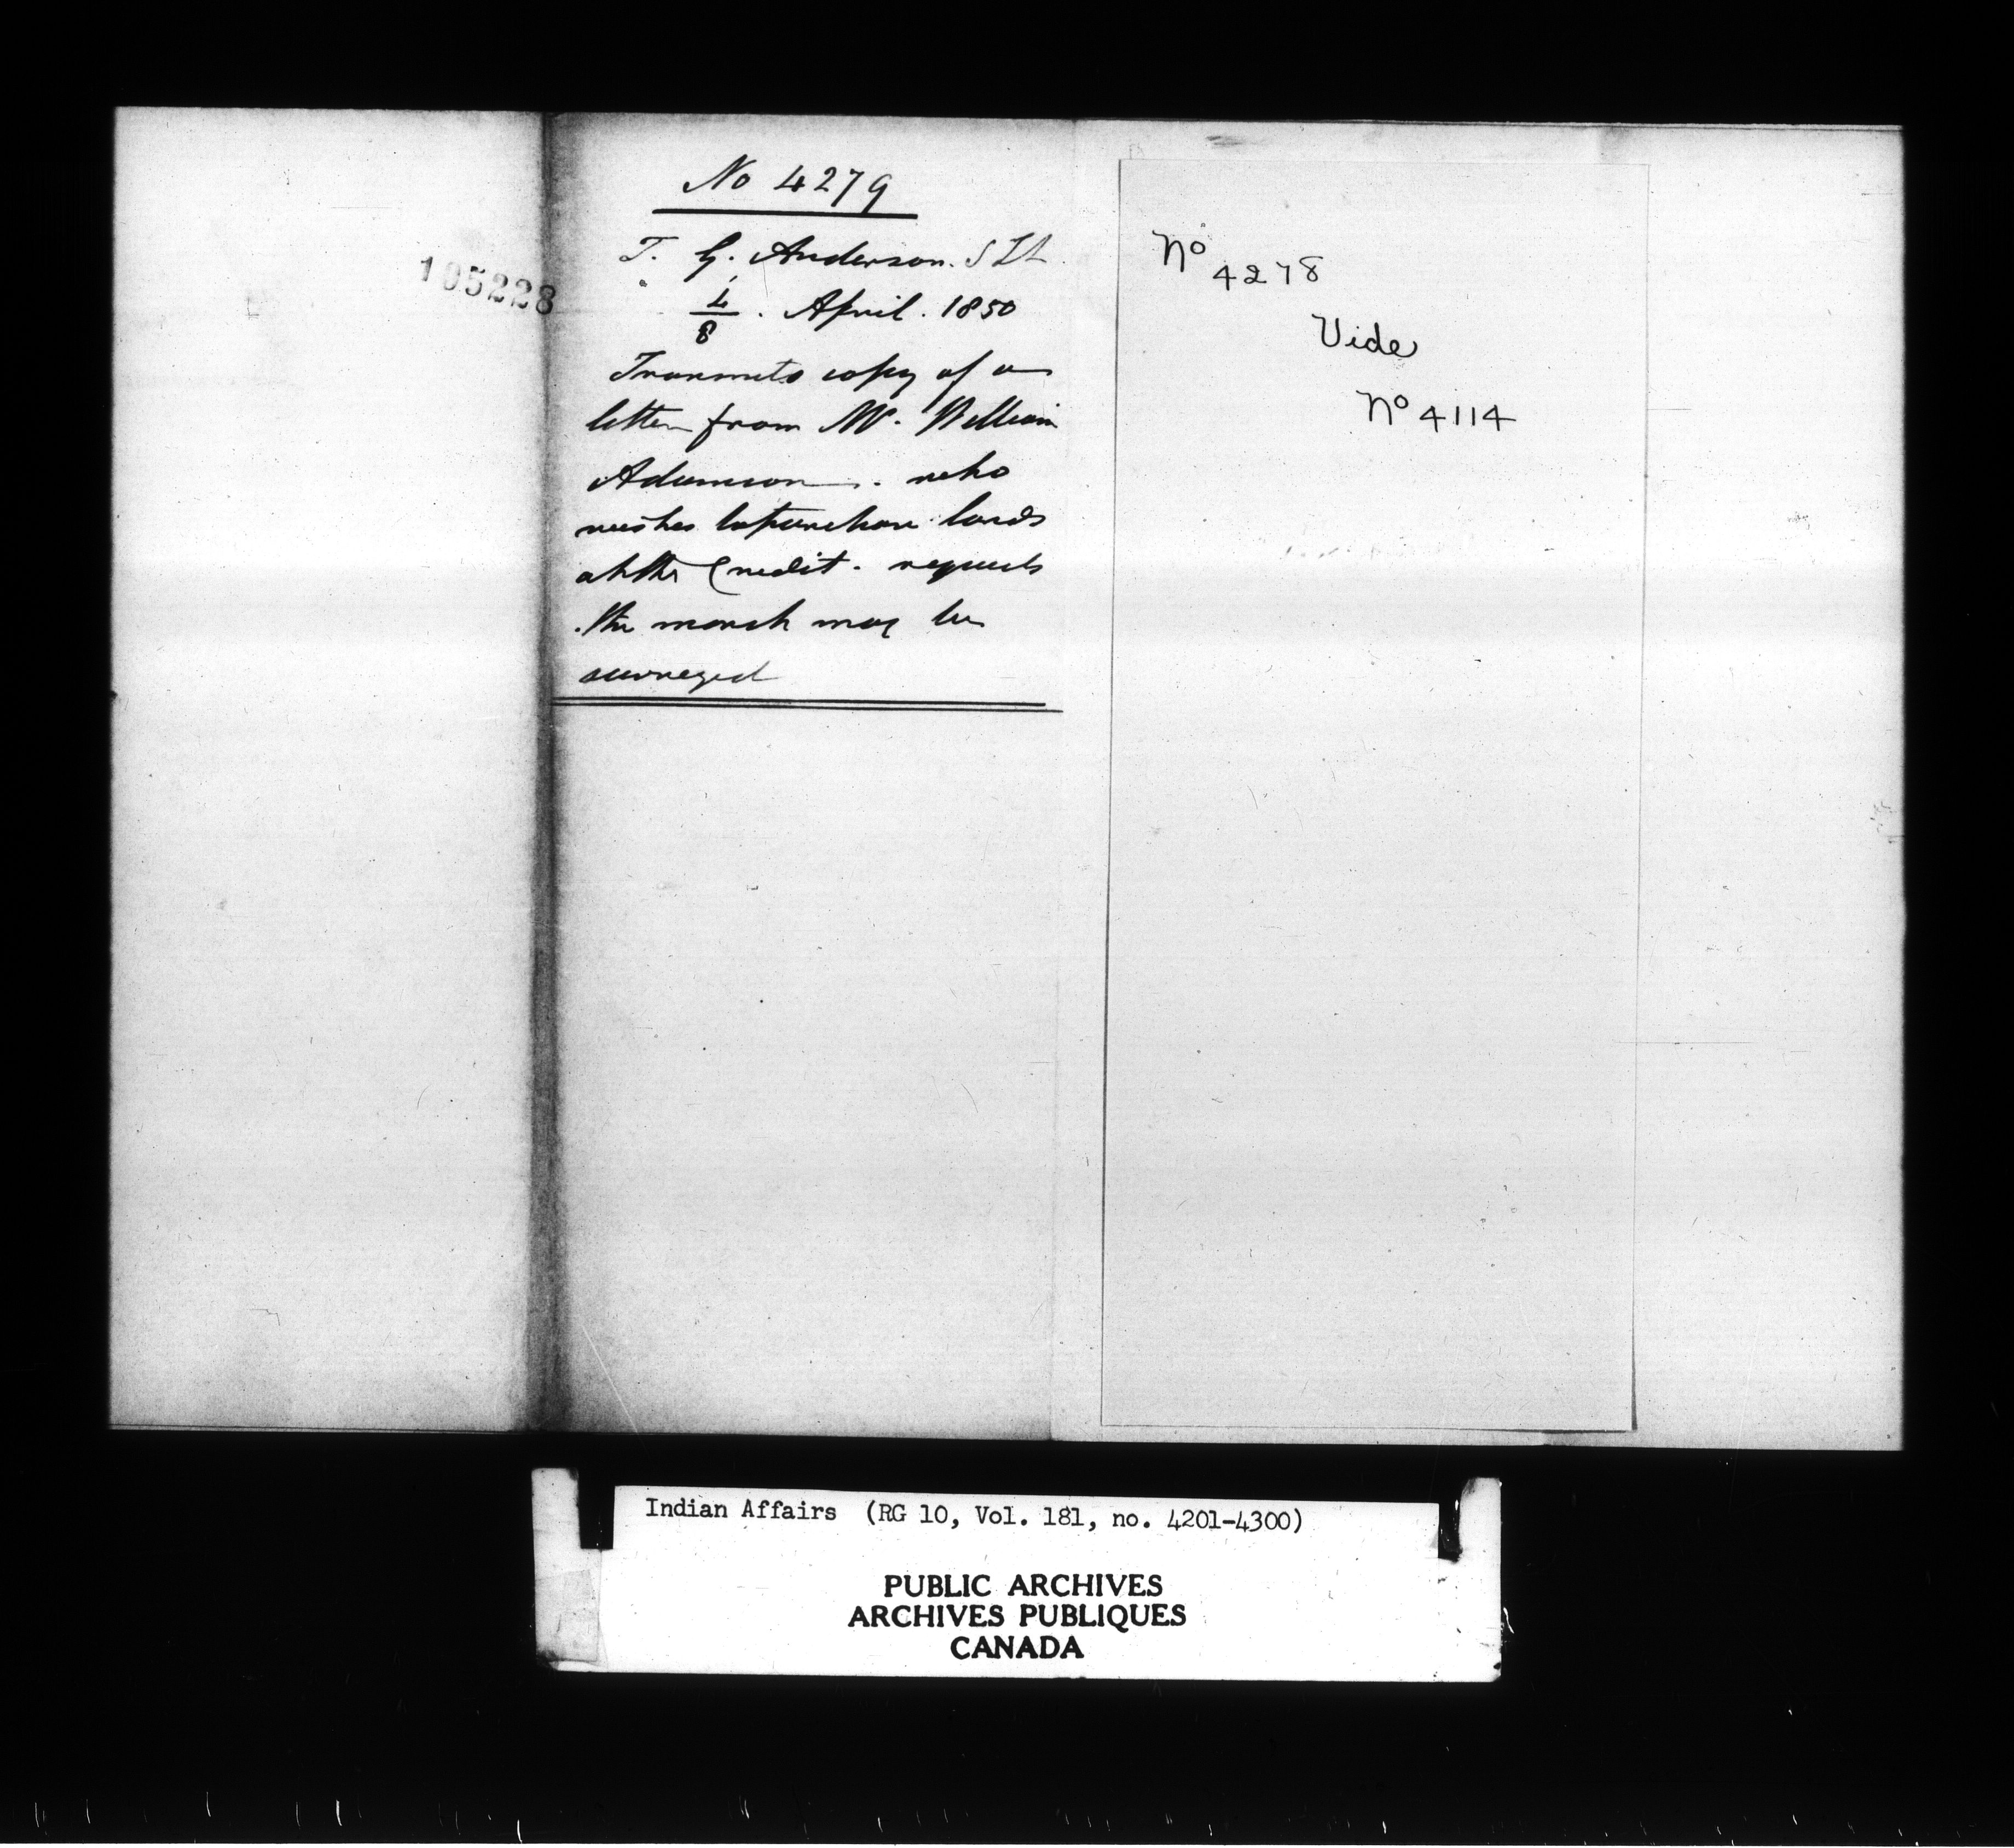 105228
No 4279
T. G. Anderson. S I A
4/8. April. 1850
Transmits copy of a
letter from Mr. William
Adamson. who
wishes to purchase lands
at the Credit. requests
the marsh may be
surveyed
No 4278
Vide
No 4114
Indian Affairs (RG 10, Vol. 181, no. 4201-4300)
PUBLIC ARCHIVES
ARCHIVES PUBLIQUES
CANADA